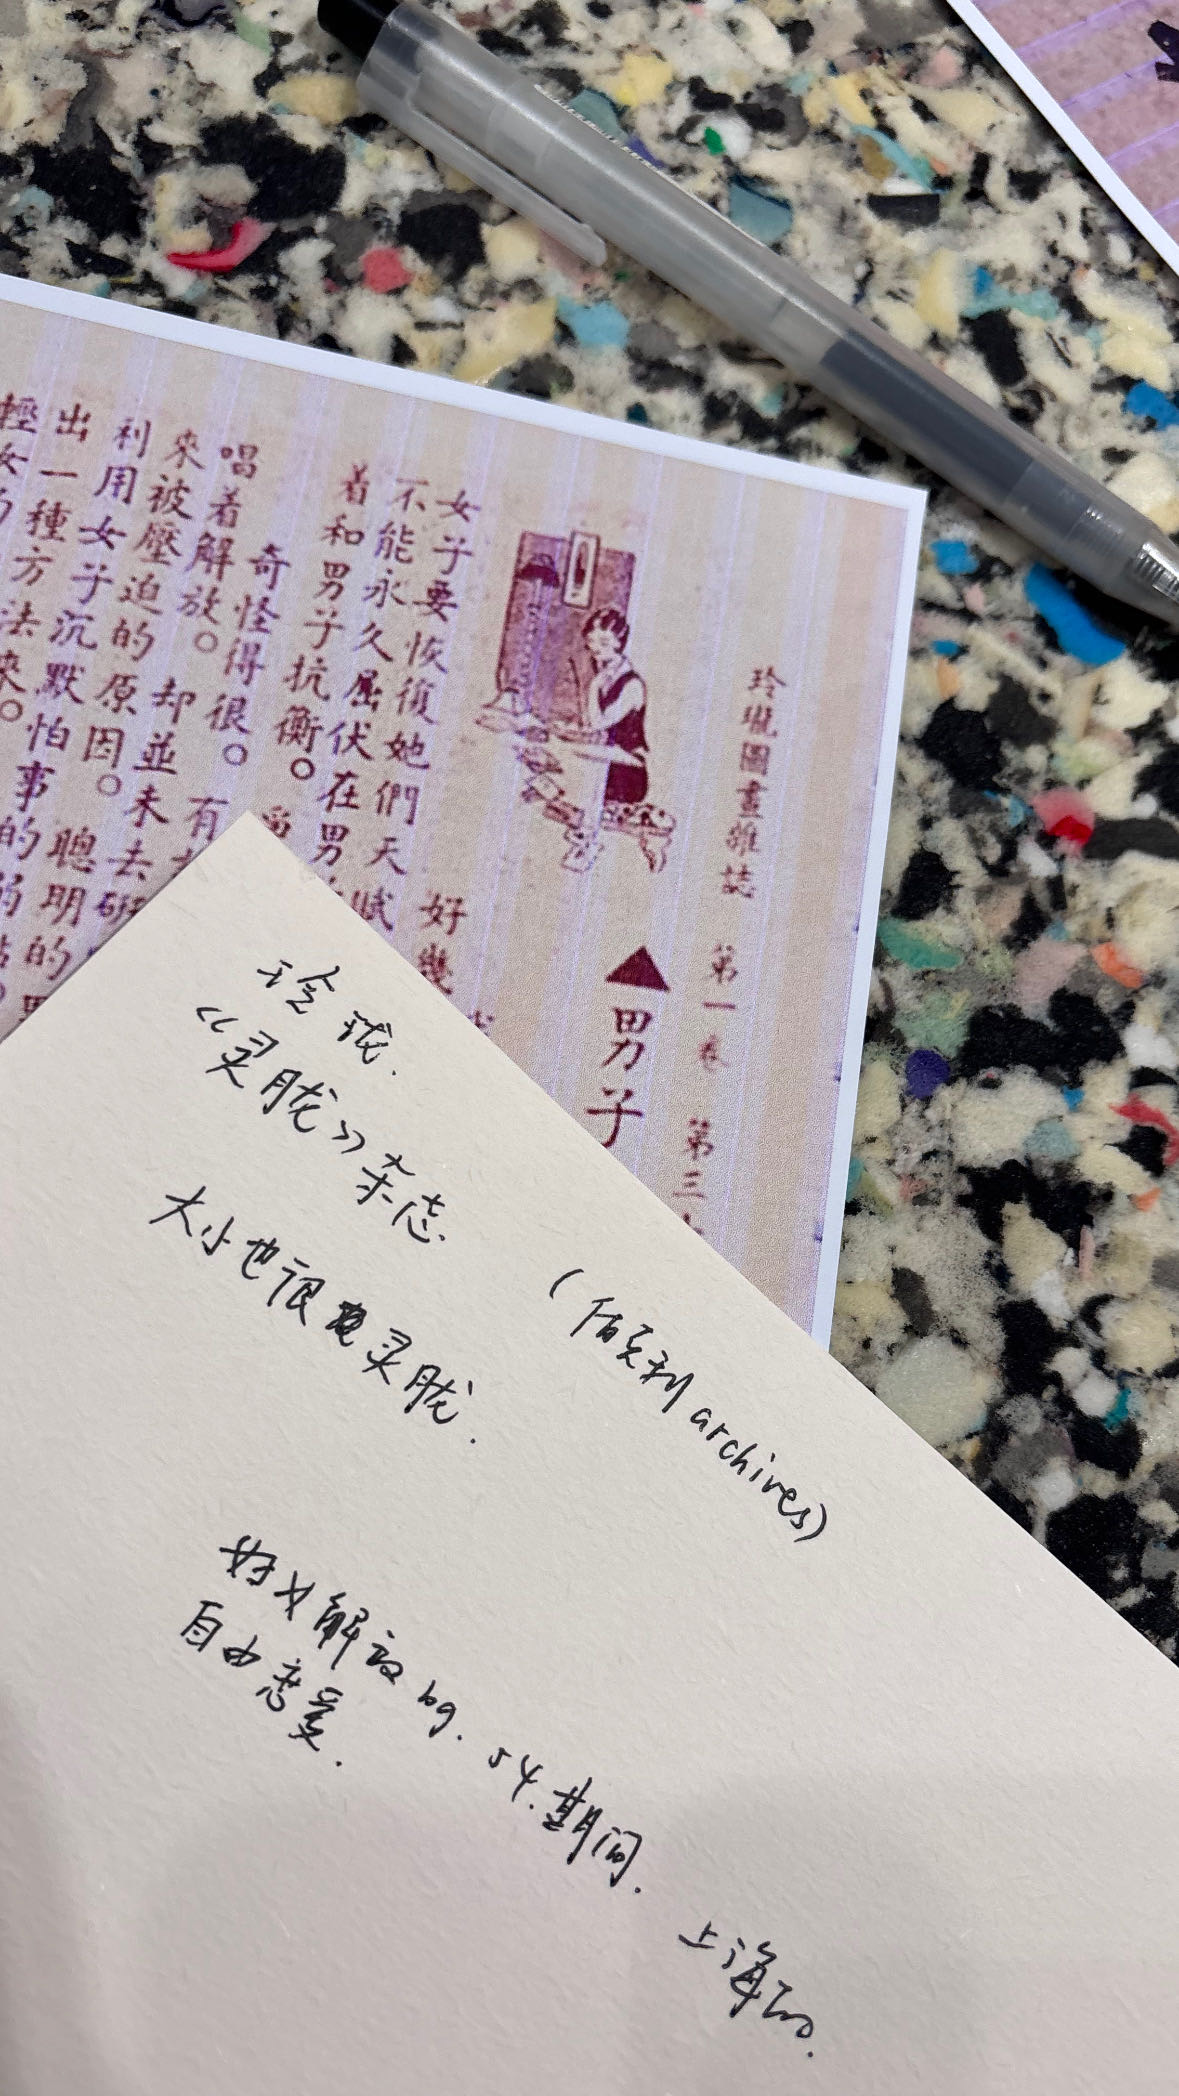 玲瓏圖畫雜誌　第一卷　第三
▲男子
女子要恢復她們天賦
不能永久屈伏在男
着和男子抗衡。
奇怪得很。有
唱着解放。却並未去研
來被壓迫的原因。聰明的男
利用女子沉默怕事的弱點。
出一種方法來。
輕女
好幾
玲珑.
《灵胧》杂志
大小也很灵胧.
(伯克利 archives)
妇女解放 bg. 54.期间.
自由恋爱.
上海